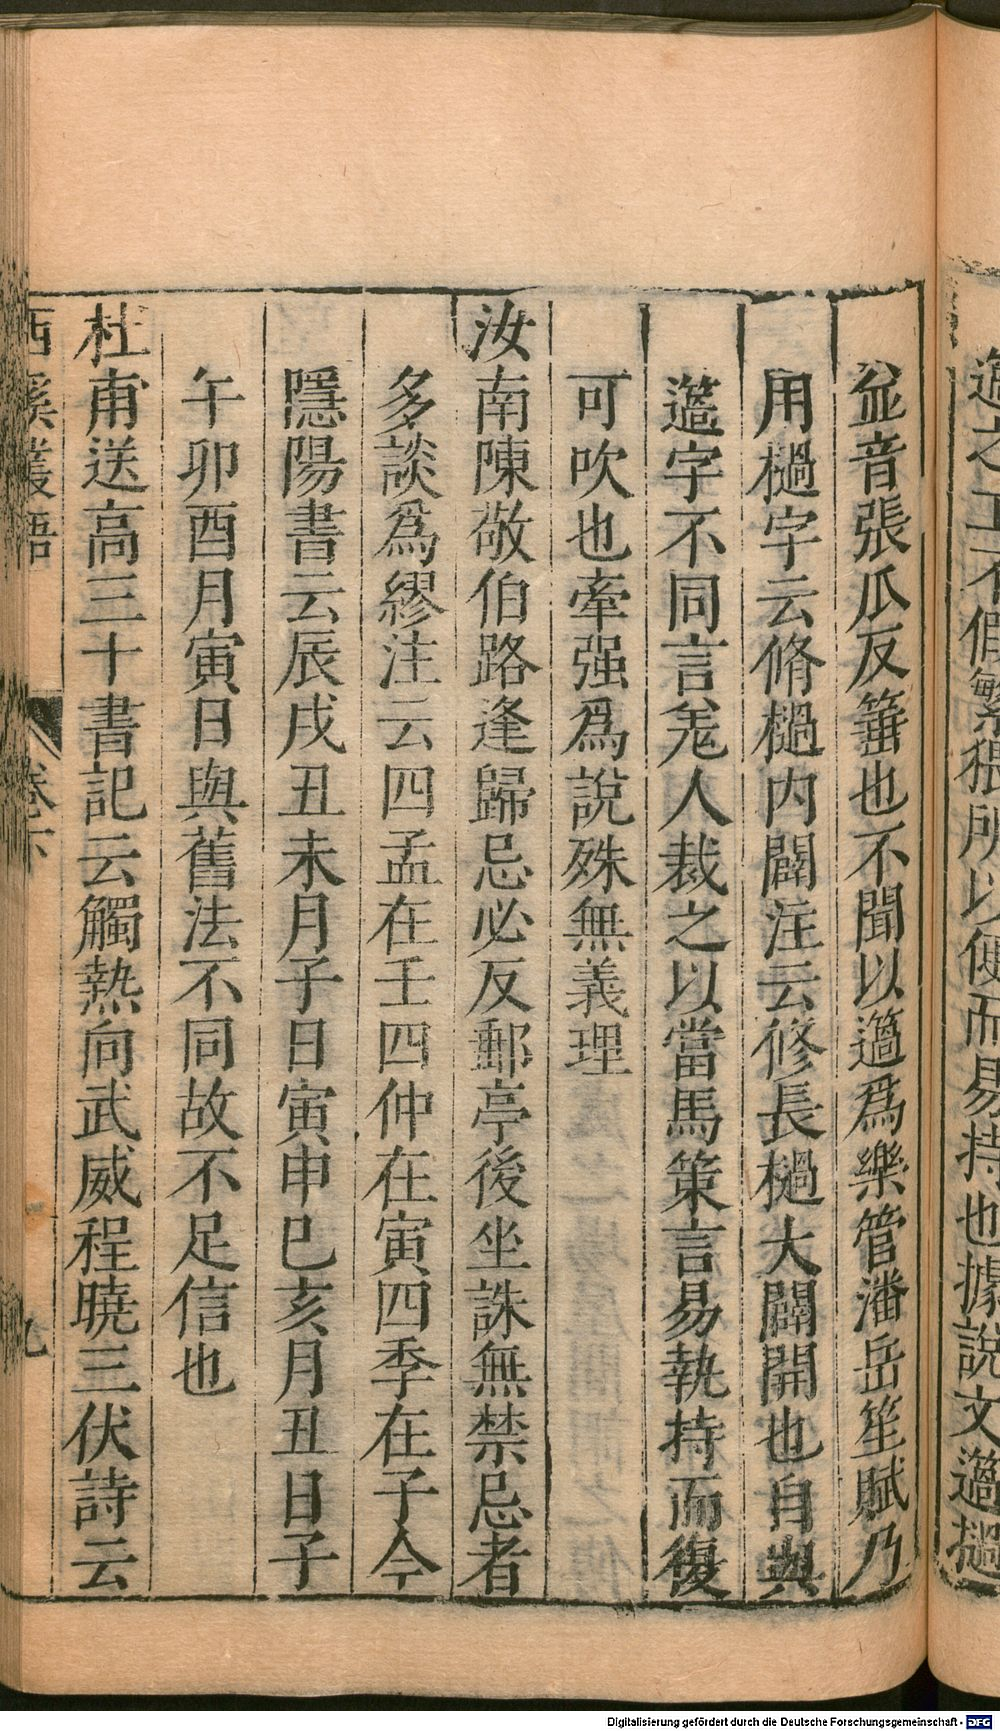 薖之工不假繁猥所以便而易持也據說文薖撾
並音張瓜反箠也不聞以薖爲樂管潘岳笙賦乃
用檛字云脩檛内闢注云修長檛大闢開也自與
薖字不同言羗人裁之以當馬策言易執持而復
可吹也牽强爲說殊無義理
汝南陳敬伯路逢歸忌必反郵亭後坐誅無禁忌者
多談爲繆注云四孟在壬四仲在寅四季在子今
隱陽書云辰戌丑未月子日寅申巳亥月丑日子
午卯酉月寅日與舊法不同故不足信也
杜甫送高三十書記云觸熱向武威程曉三伏詩云
西溪叢語 卷下 九
Digitalisierung gefördert durch die Deutsche Forschungsgemeinschaft - DFG